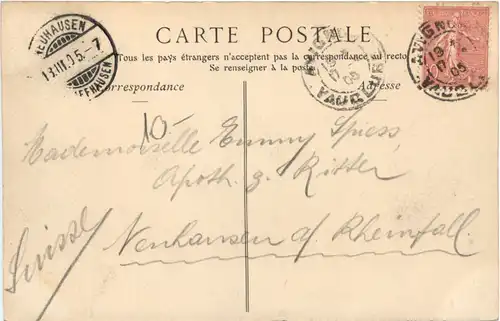 CARTE POSTALE
Tous les pays étrangers n'acceptent pas la correspondance au recto
Se renseigner à la poste
Correspondance
Adresse
NEUHAUSEN
13.III.05.-7
AVIGNON
VAUCLUSE
10-
Mademoiselle Emmy Spiess
Apoth. z. Ritter
Neuhausen a/ Rheinfall.
Suisse